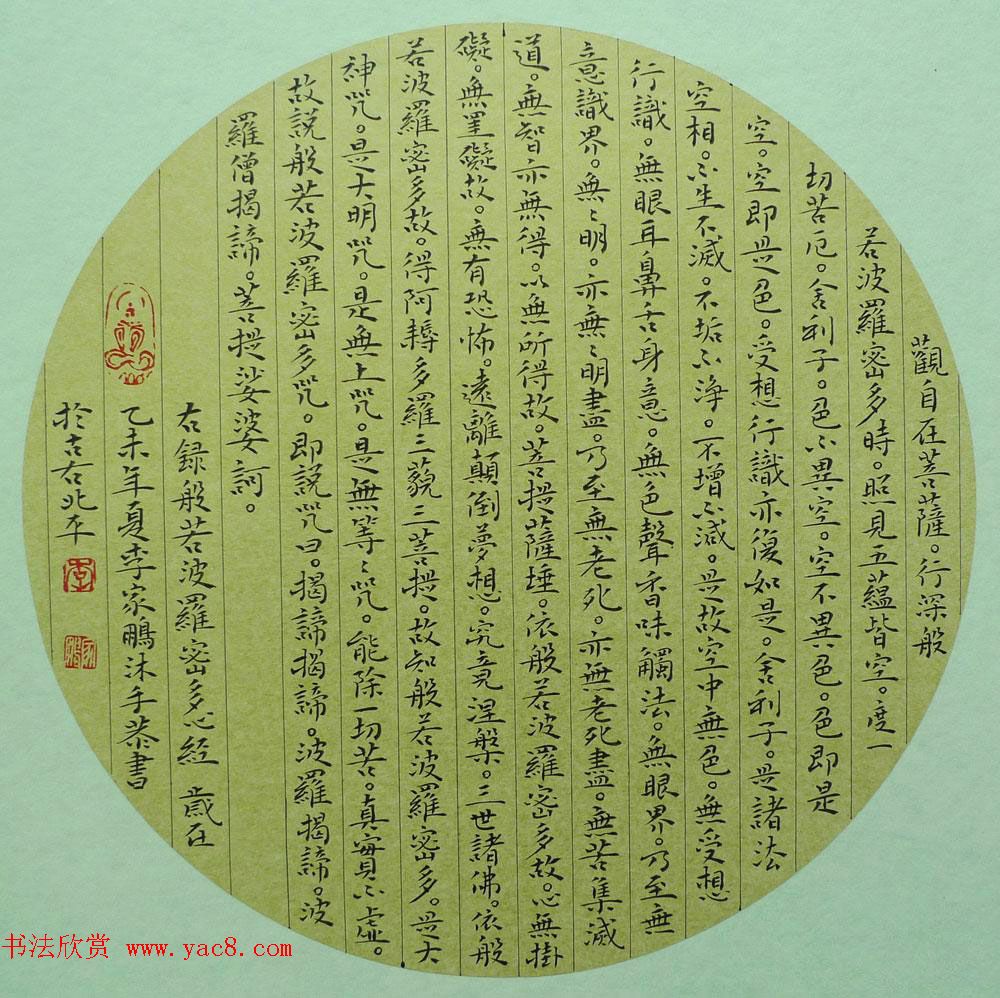 觀自在菩薩。行深般
若波羅密多時。照見五蘊皆空。度一
切苦厄。舍利子。色不異空。空不異色。色即是
空。空即是色。受想行識亦復如是。舍利子。是諸法
空相。不生不滅。不垢不净。不增不減。是故空中無色。無受想
行識。無眼耳鼻舌身意。無色聲香味觸法。無眼界。乃至無
意識界。無〻明。亦無〻明盡。乃至無老死。亦無老死盡。無苦集滅
道。無智亦無得。以無所得故。菩提薩埵。依般若波羅密多故。心無掛
礙。無罣礙故。無有恐怖。遠離顛倒夢想。究竟涅槃。三世諸佛。依般
若波羅密多故。得阿耨多羅三藐三菩提。故知般若波羅密多。是大
神咒。是大明咒。是無上咒。是無等〻咒。能除一切苦。真實不虛。
故説般若波羅密多咒。即説咒曰。揭諦揭諦。波羅揭諦。波
羅僧揭諦。菩提娑婆訶。
右録般若波羅密多心經 歲在
乙未年夏李家鵬沐手恭書
於古右北平
书法欣赏 www.yac8.com